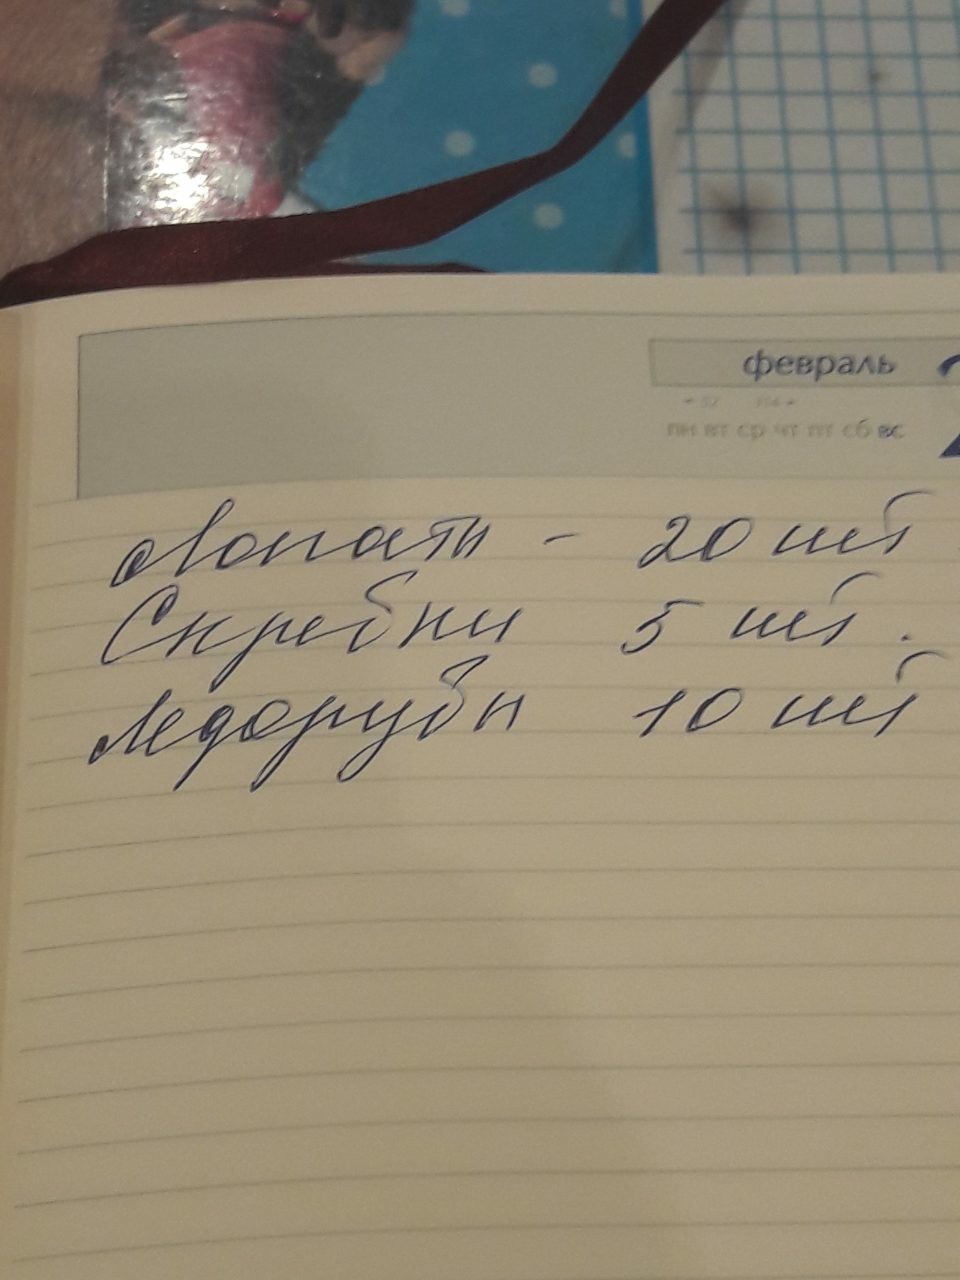 февраль
пн вт ср чт пт сб вс
Лопаты - 20 шт
Скребки 5 шт.
Ледорубы 10 шт